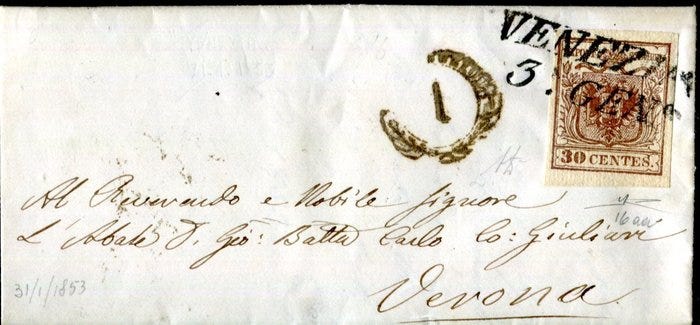 VENEZIA
3. GEN.
1
30 CENTES.
Al Reverendo e Nobile Signore
L'Abate D. Gio: Batta Carlo Co: Giuliari
Verona
31/1/1853